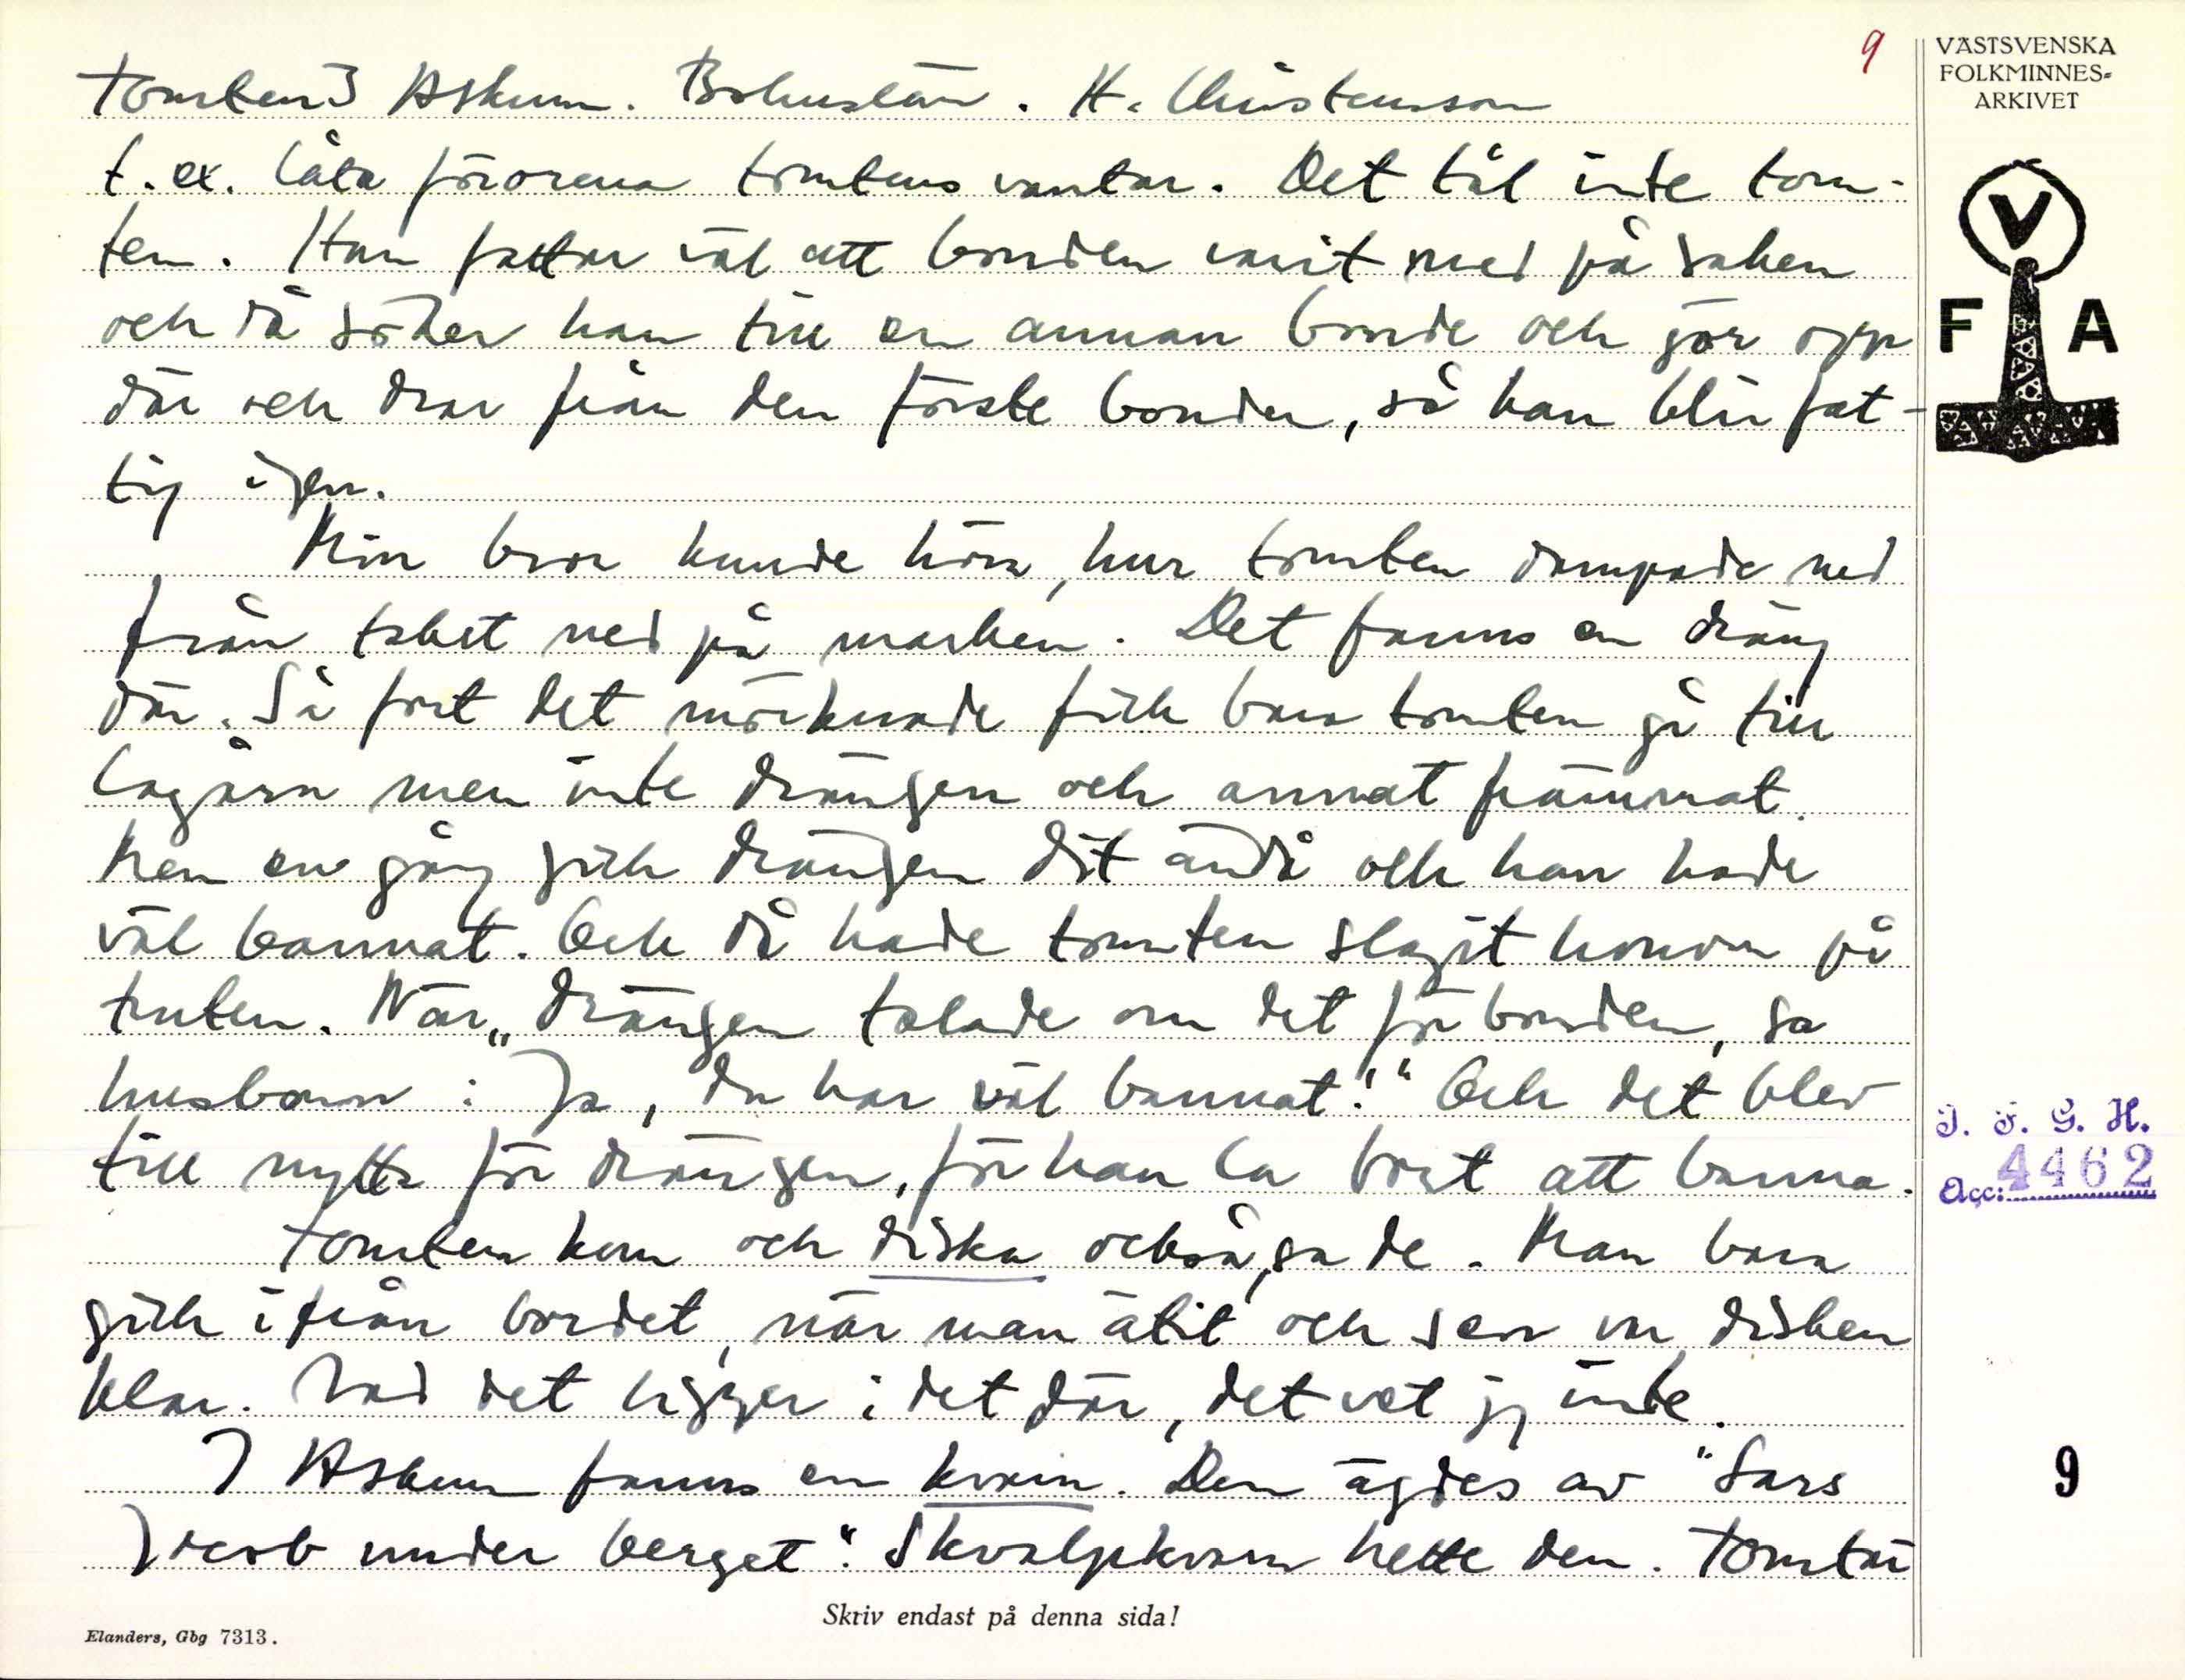 9
Tomten 3 Askum. Bohuslän. H. Christensson
t. ex. låta förorena tomtens vantar. Det tål inte tom-
ten. Han fattar väl att bonden varit med på saken
och då söker han till en annan bonde och gör opp
där och drar från den förste bonden, så han blir fat-
tig igen.
Min bror kunde höra, hur tomten dampade ned
från taket ned på marken. Det fanns en dräng
där. Så fort det mörknade fick bara tomten gå till
lagårn men inte drängen och annat främmat.
Men en gång gick drängen dit ändå och han hade
väl bannat. Och då hade tomten slagit honom på
truten. När drängen talade om det för bonden, sa
husbonn: „Ja, du har väl bannat!“ Och det blev
till nytta för drängen, för han la bort att banna.
Tomten kom och diska också, sa de. Man bara
gick ifrån bordet, när man ätit och sen va disken
klar. Vad det ligger i det där, det vet jg inte.
I Askum fanns en kvarn. Den ägdes av "Lars
Jacob under berget". Skvalpkvarn hette den. Tomtar
VÄSTSVENSKA
FOLKMINNES-
ARKIVET
V
F A
I. F. G. H.
Acc: 4462
9
Skriv endast på denna sida!
Elanders, Gbg 7313.